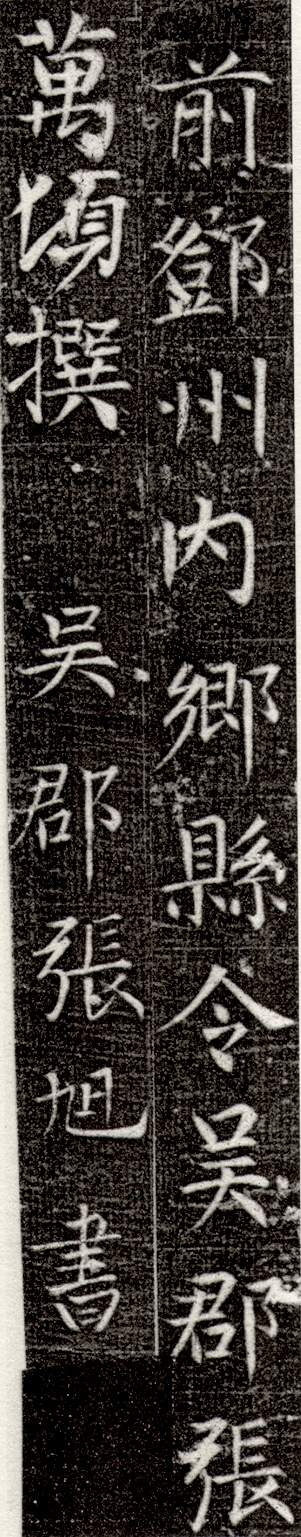 前鄧州内鄉縣令吴郡張
萬頃撰 吴郡張旭書